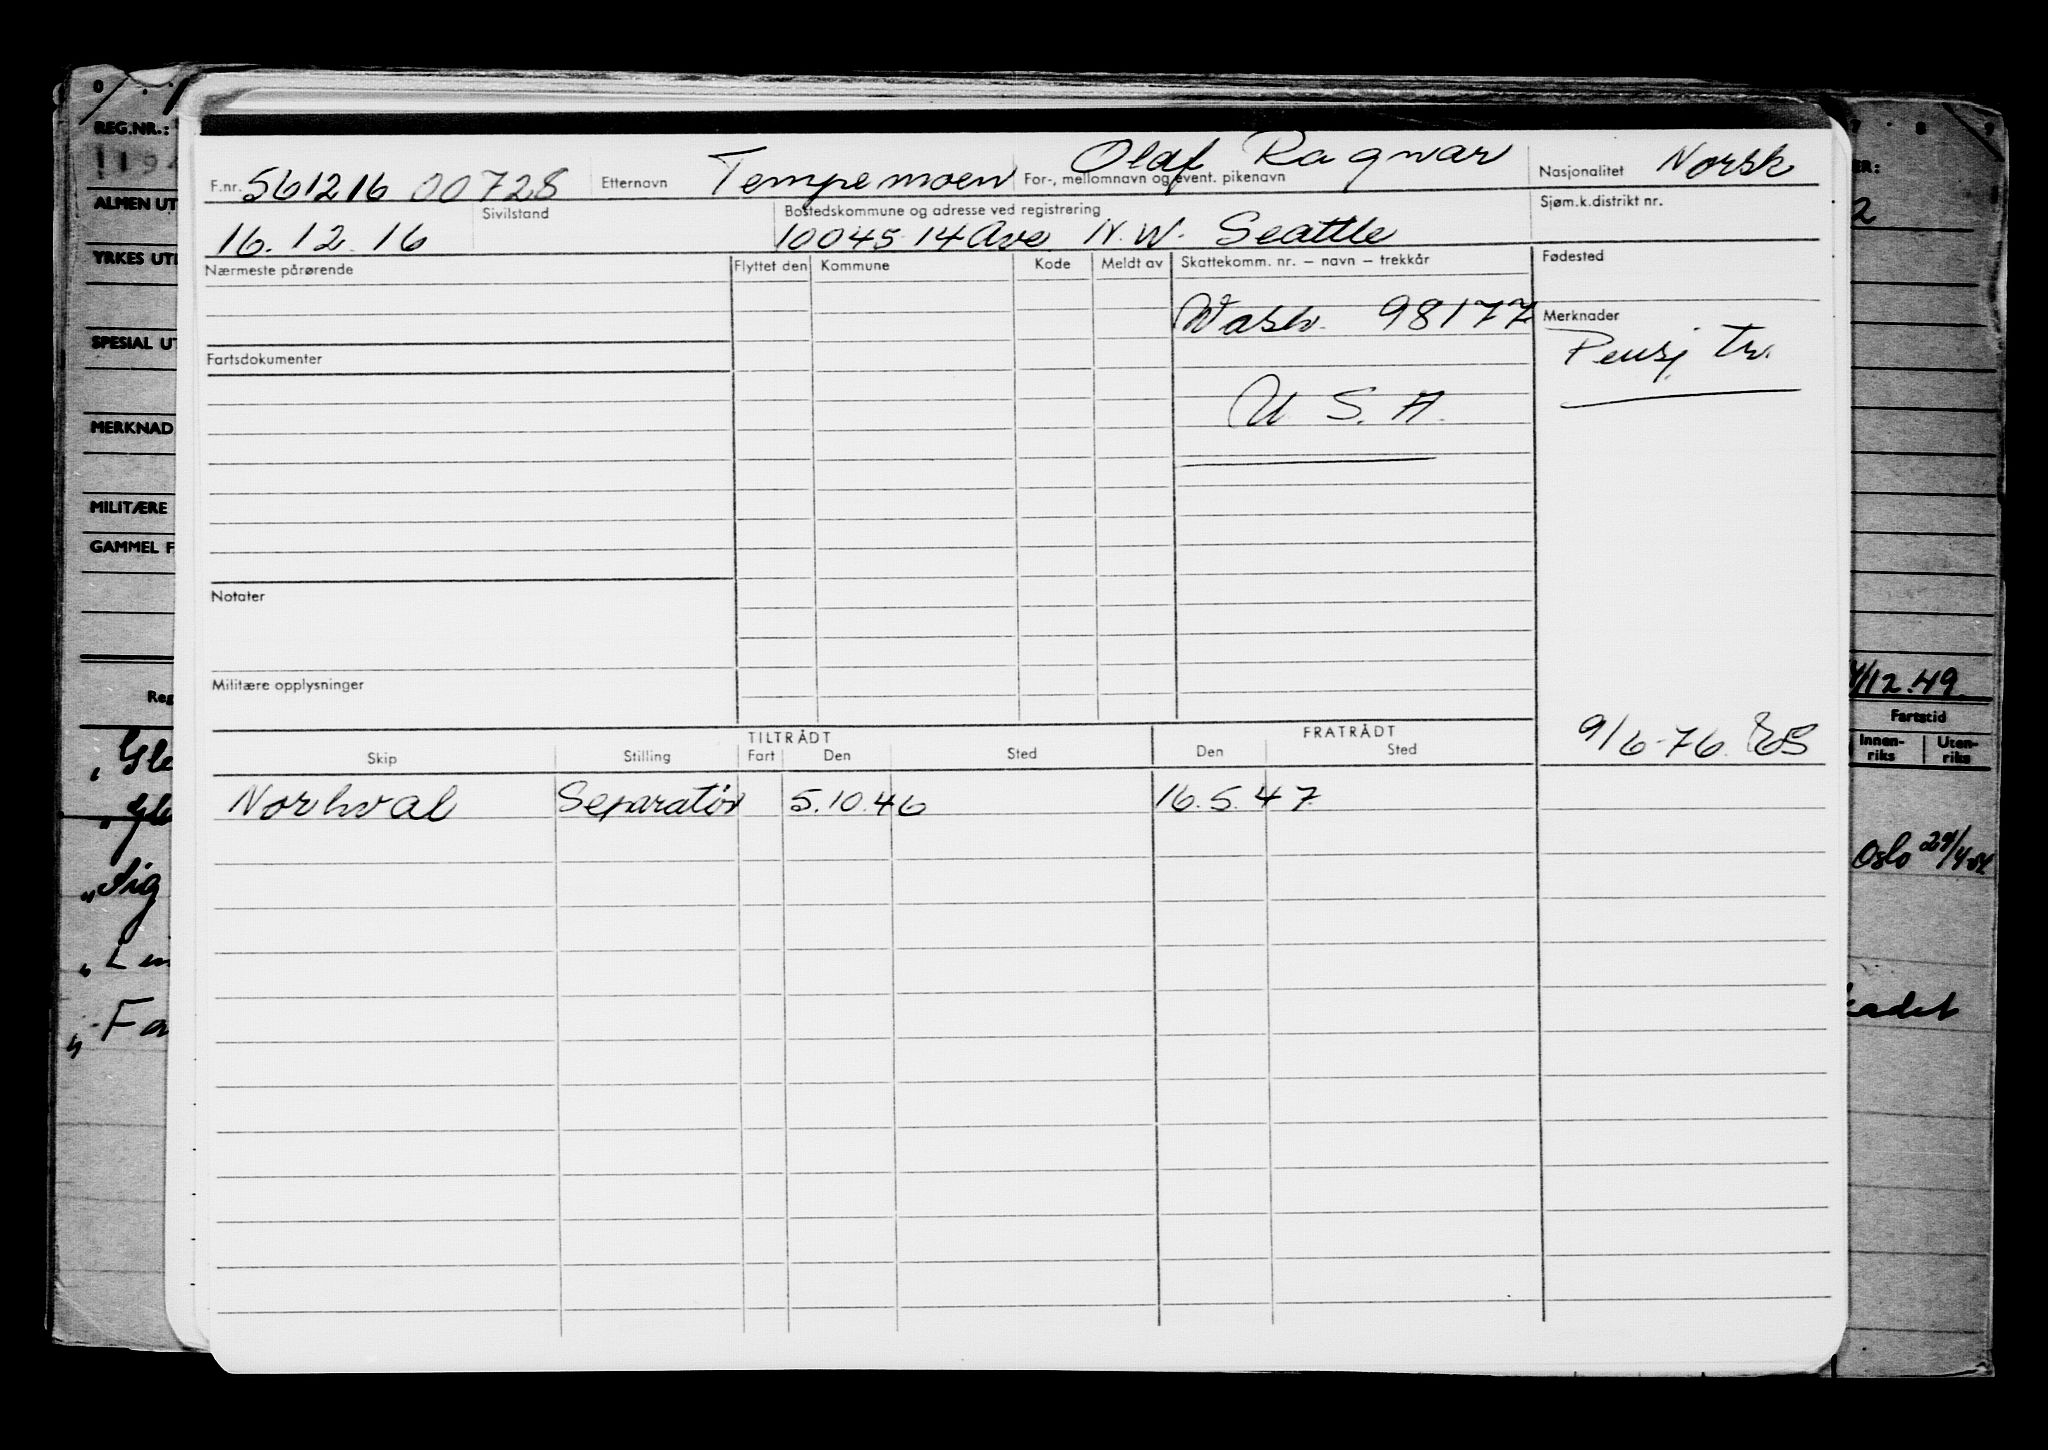 F.nr. 561216 00728 Etternavn Tempemoen For-, mellomnavn og event. pikenavn Olaf Ragnar Nasjonalitet Norsk
16.12.16 Sivilstand Bostedskommune og adresse ved registrering 10045 14 Ave. N.W. Seattle Sjøm.k.distrikt nr.
Nærmeste pårørende Flyttet den Kommune Kode Meldt av Skattekomm. nr. – navn – trekkår Fødested
Wash. 98177 Merknader
Fartsdokumenter Pensj tr.
U. S. A.
Notater
Militære opplysninger
TILTRÅDT FRATRÅDT 9/6-76.
Skip Stilling Fart Den Sted Den Sted
Norhval Separatør 5.10.46 16.5.47
REG.NR.:
ALMEN UT
YRKES UT
SPESIAL UT
MERKNAD
MILITÆRE
GAMMEL F
Reg
ER:
2
/12.49.
Fartstid
Innen-riks Uten-riks
Oslo